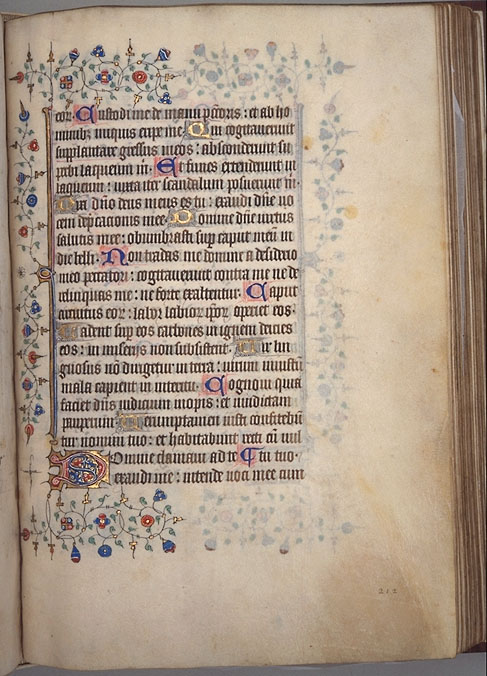 eor. Custodi me de manu pctoris: et ab ho
minibz iniquis eripe me. Qui cogitaverunt
supplantare gressus meos: absconderunt su
perbi laqueum m. Et funes extenderunt in
laqueum: iuxta iter scandalum posuerunt m.
Dixi dno deus meus es tu: exaudi dne vo
cem deprecationis mee. Domine dne virtus
salutis mee: obumbrasti sup caput meum in
die belli. Non tradas me domine a desiderio
meo peccatori: cogitaverunt contra me ne de
relinquas me: ne forte exaltentur. Caput
circuitus eor: labor labiorum ipsor operiet eos.
Cadent sup eos carbones in ignem deicies
eos: in miseriis non subsistent. Vir lin
guosus non dirigetur in terra: virum iniustum
mala capient in interitu. Cognovi quia
faciet dns iudicium inopis: et vindictam
pauperum. Veruptamen iusti confitebun
tur nomini tuo: et habitabunt recti cum vul
Domine clamavi ad te tuo.
exaudi me: intende voci mee cum
212